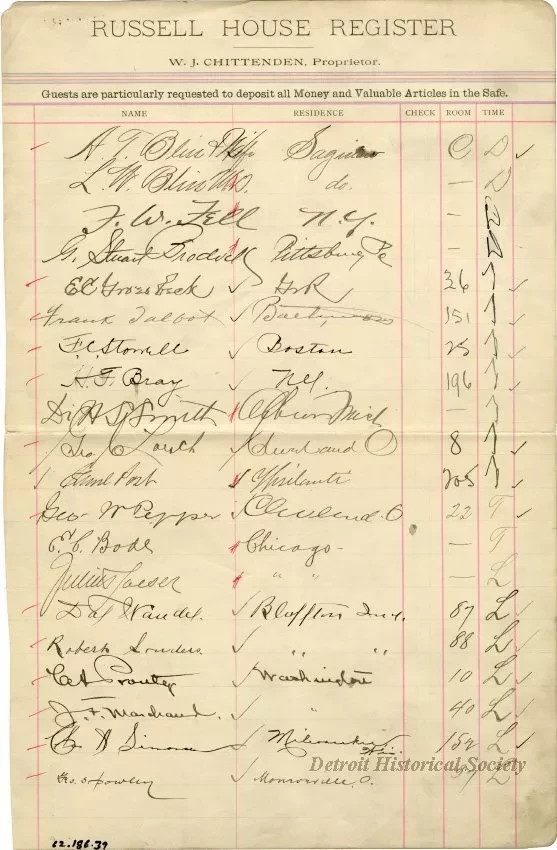 RUSSELL HOUSE REGISTER
W. J. CHITTENDEN, Proprietor.
Guests are particularly requested to deposit all Money and Valuable Articles in the Safe.
NAME RESIDENCE CHECK ROOM TIME
A. T. Bliss & Wife Saginaw C D
L. W. Bliss do. — D
F. W. Fell N.Y. —
G. Stuart Pittsburg Pa —
E C Groesbeck G R 36
Frank Talbot 151
F. C. Stowell Boston 25
H. F. Bray N.Y. 196
Dr H S Smith Mich —
Geo C Cleveland O 8
Post Ypsilanti 205
Geo W Pepper Cleveland. O 22 T
E. C. Bode Chicago — T
Julius " " — L
Bluffton Ind. 87 L
Robert " " 88 L
Washington 10 L
J. F. Marchand. " 40 L
Milwaukee Wis 152 L
Monroeville, O. L
Detroit Historical Society
62.186.39